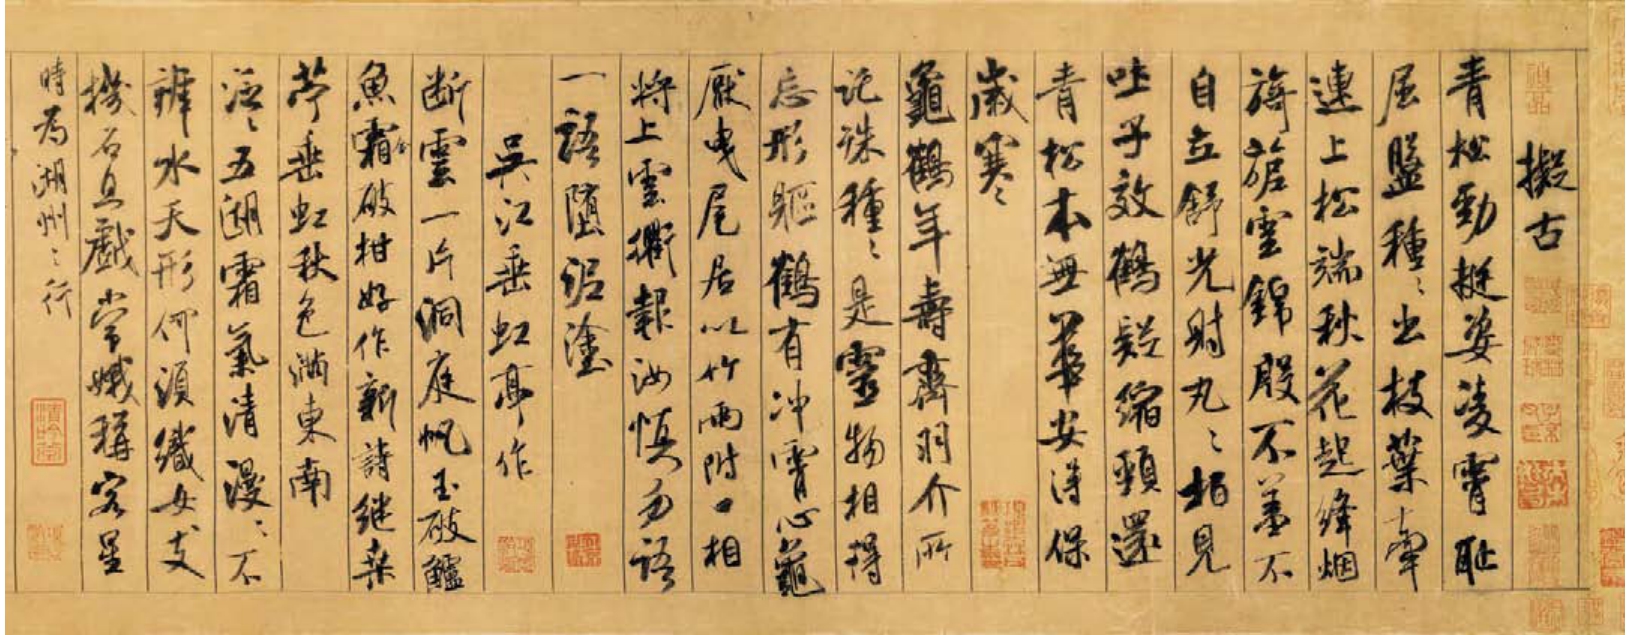 擬古
青松勁挺姿凌霄恥
屈盤種種出枝葉牽
連上松端秋花起絳烟
旖旎雲錦殷不羞不
自立舒光射丸丸柏見
吐子效鶴疑縮頸還
青松本無華安得保
歲寒
龜鶴年壽齊羽介所
託殊種種是靈物相得
忘形軀鶴有冲霄心龜
厭曳尾居以竹兩附口相
將上雲衢報汝慎勿語
一語墮泥塗
吳江垂虹亭作
断雲一片洞庭帆玉破鱸
魚霜破柑好作新詩継桑
苧垂虹秋色滿東南
泛泛五湖霜氣清漫漫不
辨水天形何須織女支
機石且戲常娥稱客星
時為湖州之行